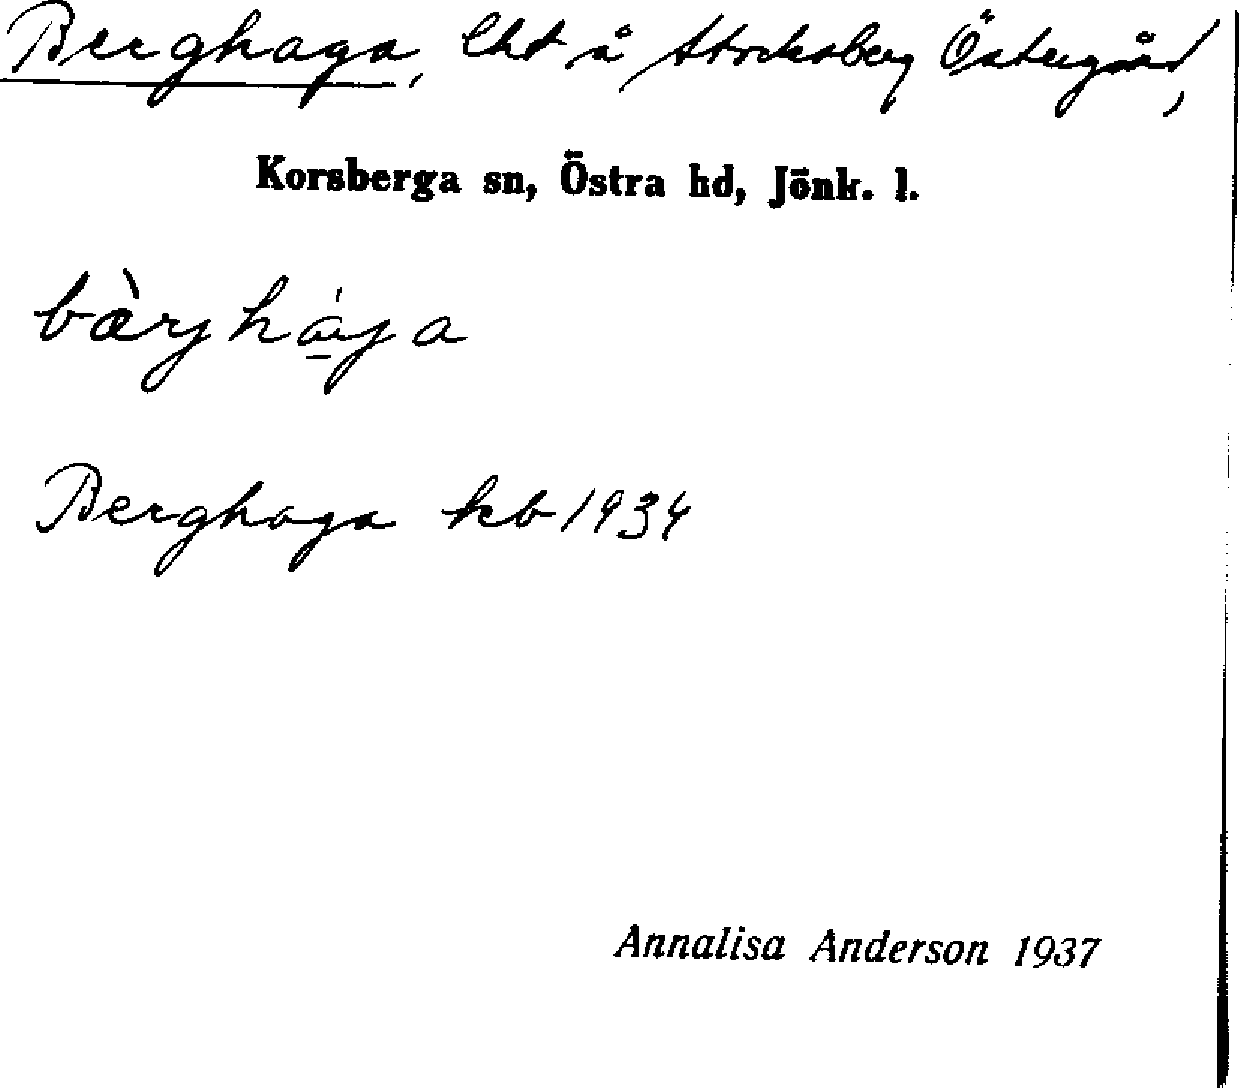 Berghaga, lht å Stocksberg Östergård,
Korsberga sn, Östra hd, Jönk. l.
bærjhaga
Berghaga kb 1934
Annalisa Anderson 1937